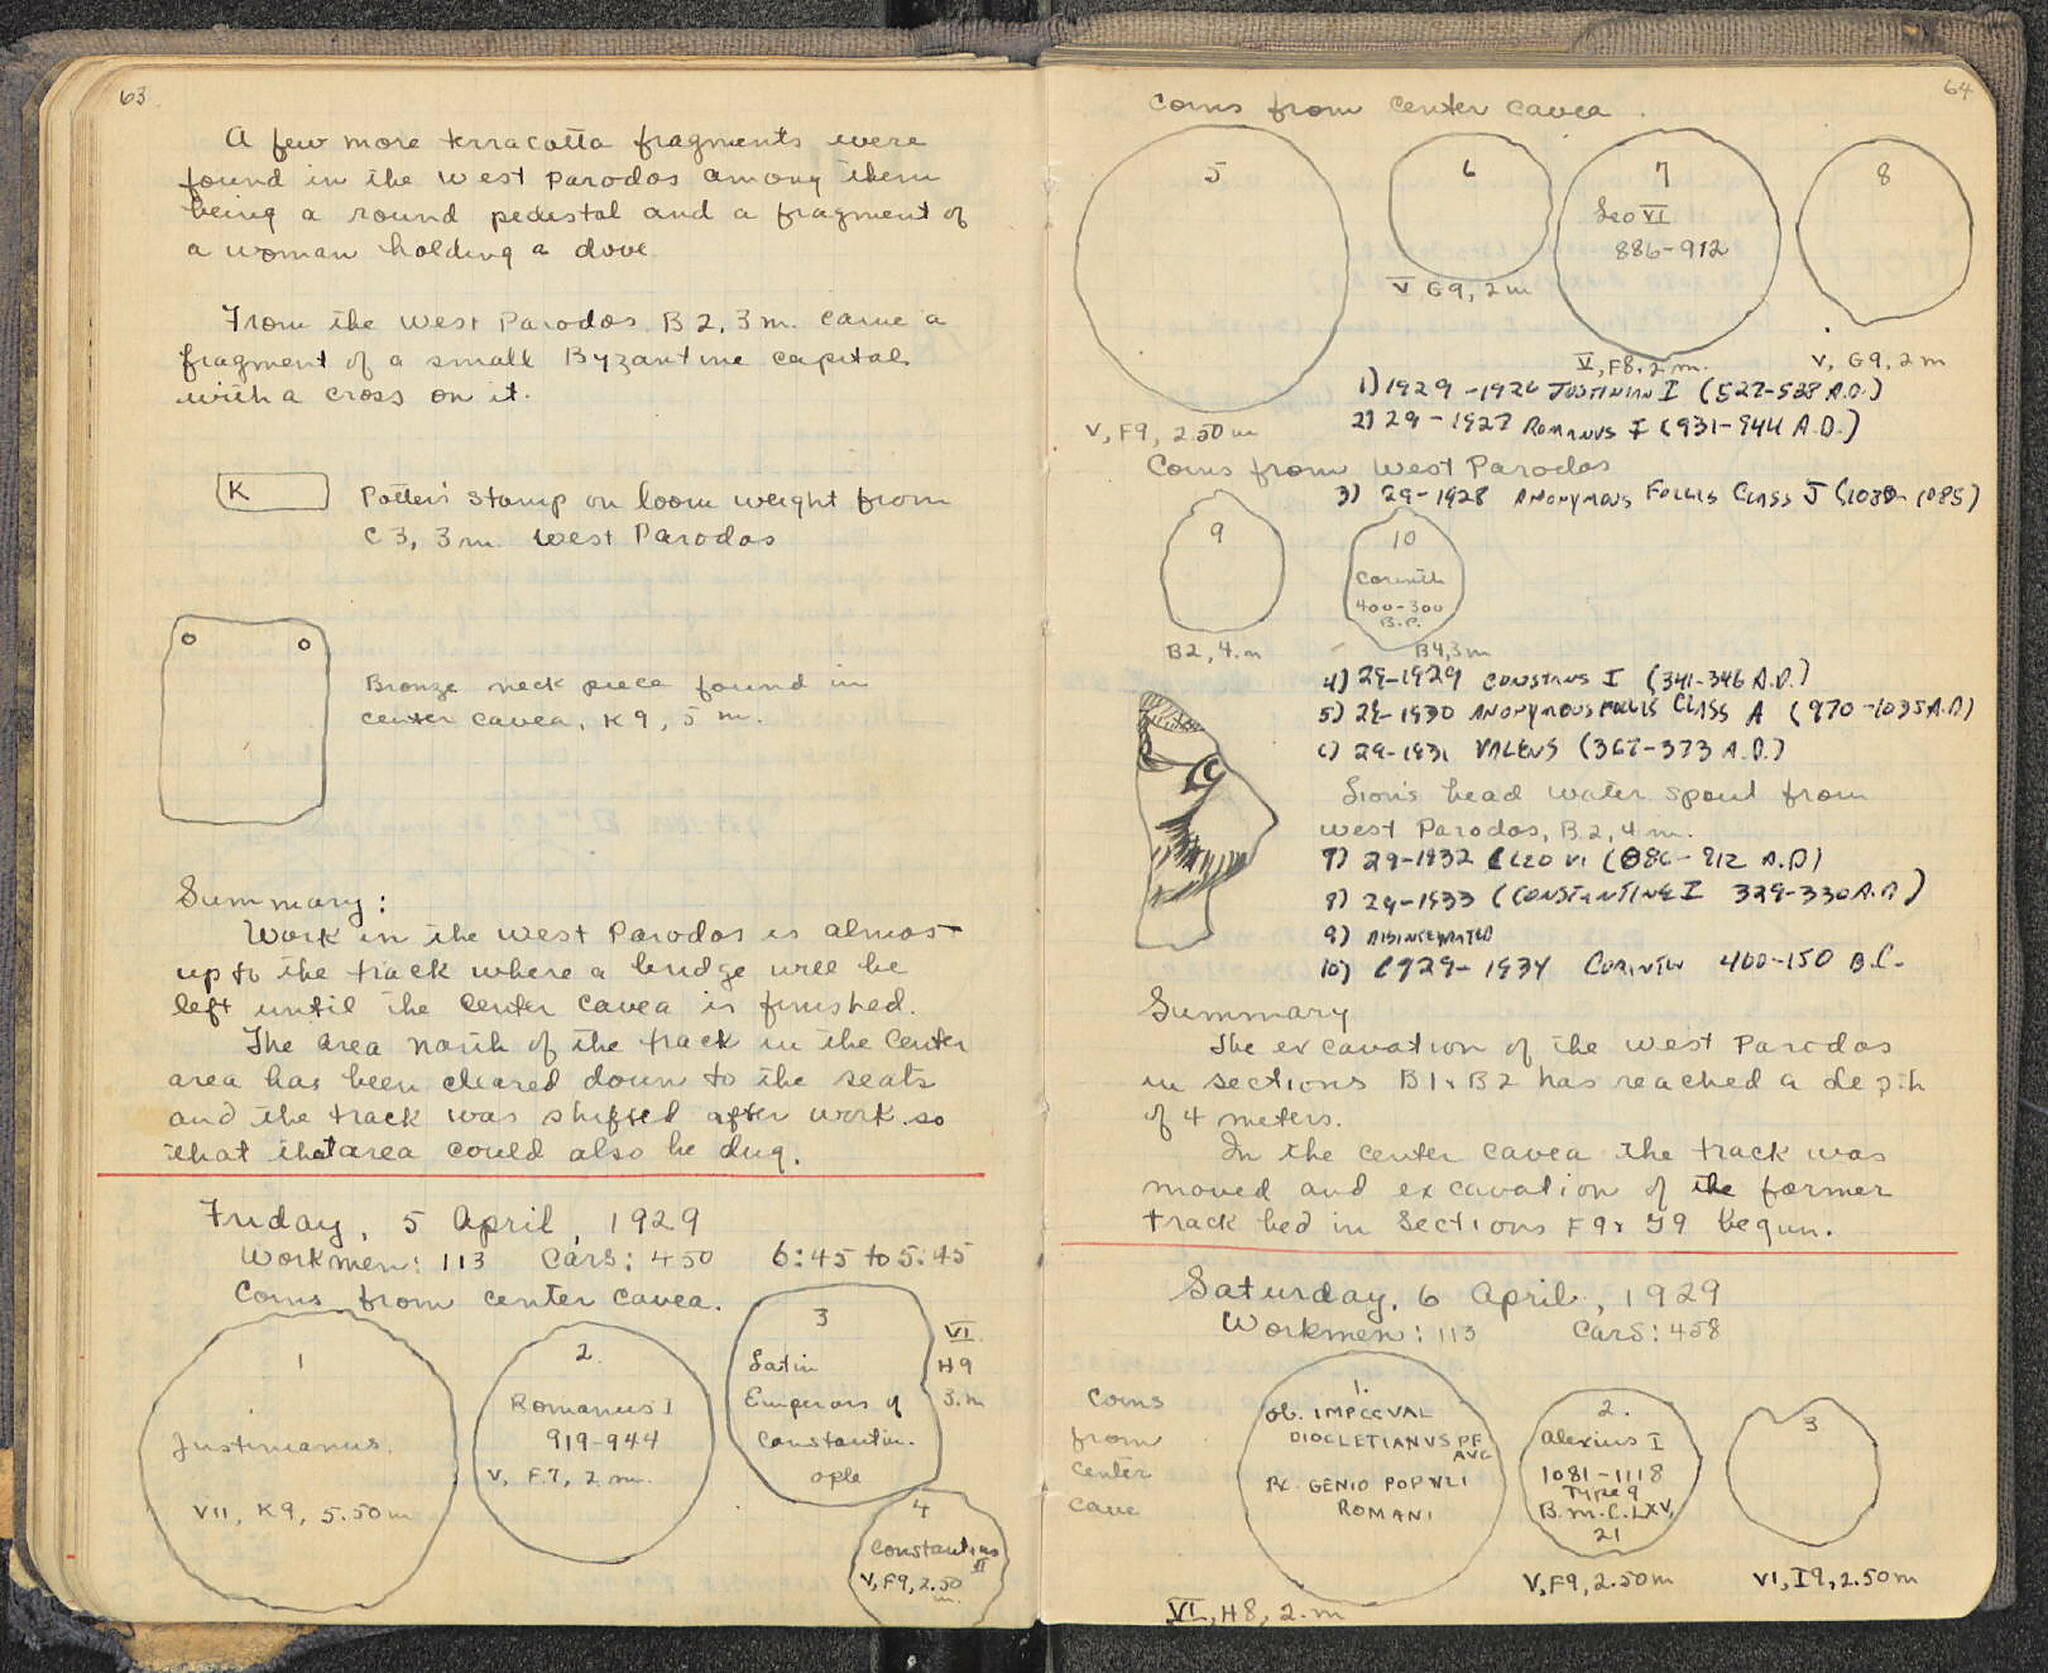 63
A few more terracotta fragments were
found in the West Parodos among them
being a round pedestal and a fragment of
a woman holding a dove
From the West Parodos B2, 3m. came a
fragment of a small Byzantine capital
with a cross on it.
K
Potter's stamp on loom weight from
C3, 3m. West Parodos
Bronze neck piece found in
center cavea, K9, 5 m.
Summary:
Work in the West Parodos is almost
up to the track where a bridge will be
left until the center cavea is finished.
The area north of the track in the center
area has been cleared down to the seats
and the track was shifted after work so
that that area could also be dug.
Friday, 5 April, 1929
Workmen: 113 Cars: 450 6:45 to 5:45
Coins from center cavea.
1
Justinianus.
VII, K9, 5.50m
2.
Romanus I
919-944
V, F.7, 2 m.
3
Latin
Emperors of
Constantin-
ople
VI
H9
3.m
4
Constantius
II
V, F9, 2.50
m.
64
Coins from center cavea.
5
V, F9, 2.50m
6
V G9, 2m
7
Leo VI
886-912
V, F8, 2 m.
8
V, G9, 2m
1) 1929-1926 JUSTINIAN I (527-538 A.D.)
2) 29-1927 ROMANUS I (931-944 A.D.)
Coins from West Parodos
3) 29-1928 ANONYMOUS FOLLIS CLASS J (1080-1085)
9
B2, 4.m
10
Corinth
400-300
B.C.
B4, 3m
4) 29-1929 CONSTANS I (341-346 A.D.)
5) 29-1930 ANONYMOUS FOLLIS CLASS A (970-1035 A.D)
6) 29-1931 VALENS (367-373 A.D.)
Lion's head water spout from
West Parodos, B.2, 4 m.
7) 29-1932 LEO VI (886-912 A.D)
8) 29-1933 (CONSTANTINE I 329-330 A.D)
9) DISINTEGRATED
10) C929-1934 CORINTH 400-150 B.C.
Summary
The excavation of the West Parodos
in sections B1 & B2 has reached a depth
of 4 meters.
In the center cavea the track was
moved and excavation of the former
track bed in sections F9 & G9 begun.
Saturday, 6 April, 1929
Workmen: 113 Cars: 458
Coins
from
center
cave
1.
Ob. IMPCCVAL
DIOCLETIANVS PF
AVG
Rv. GENIO POPVLI
ROMANI
VI, H8, 2.m
2.
Alexius I
1081-1118
Type 9
B.M.C. LXV,
21
V, F9, 2.50m
3
VI, I9, 2.50m